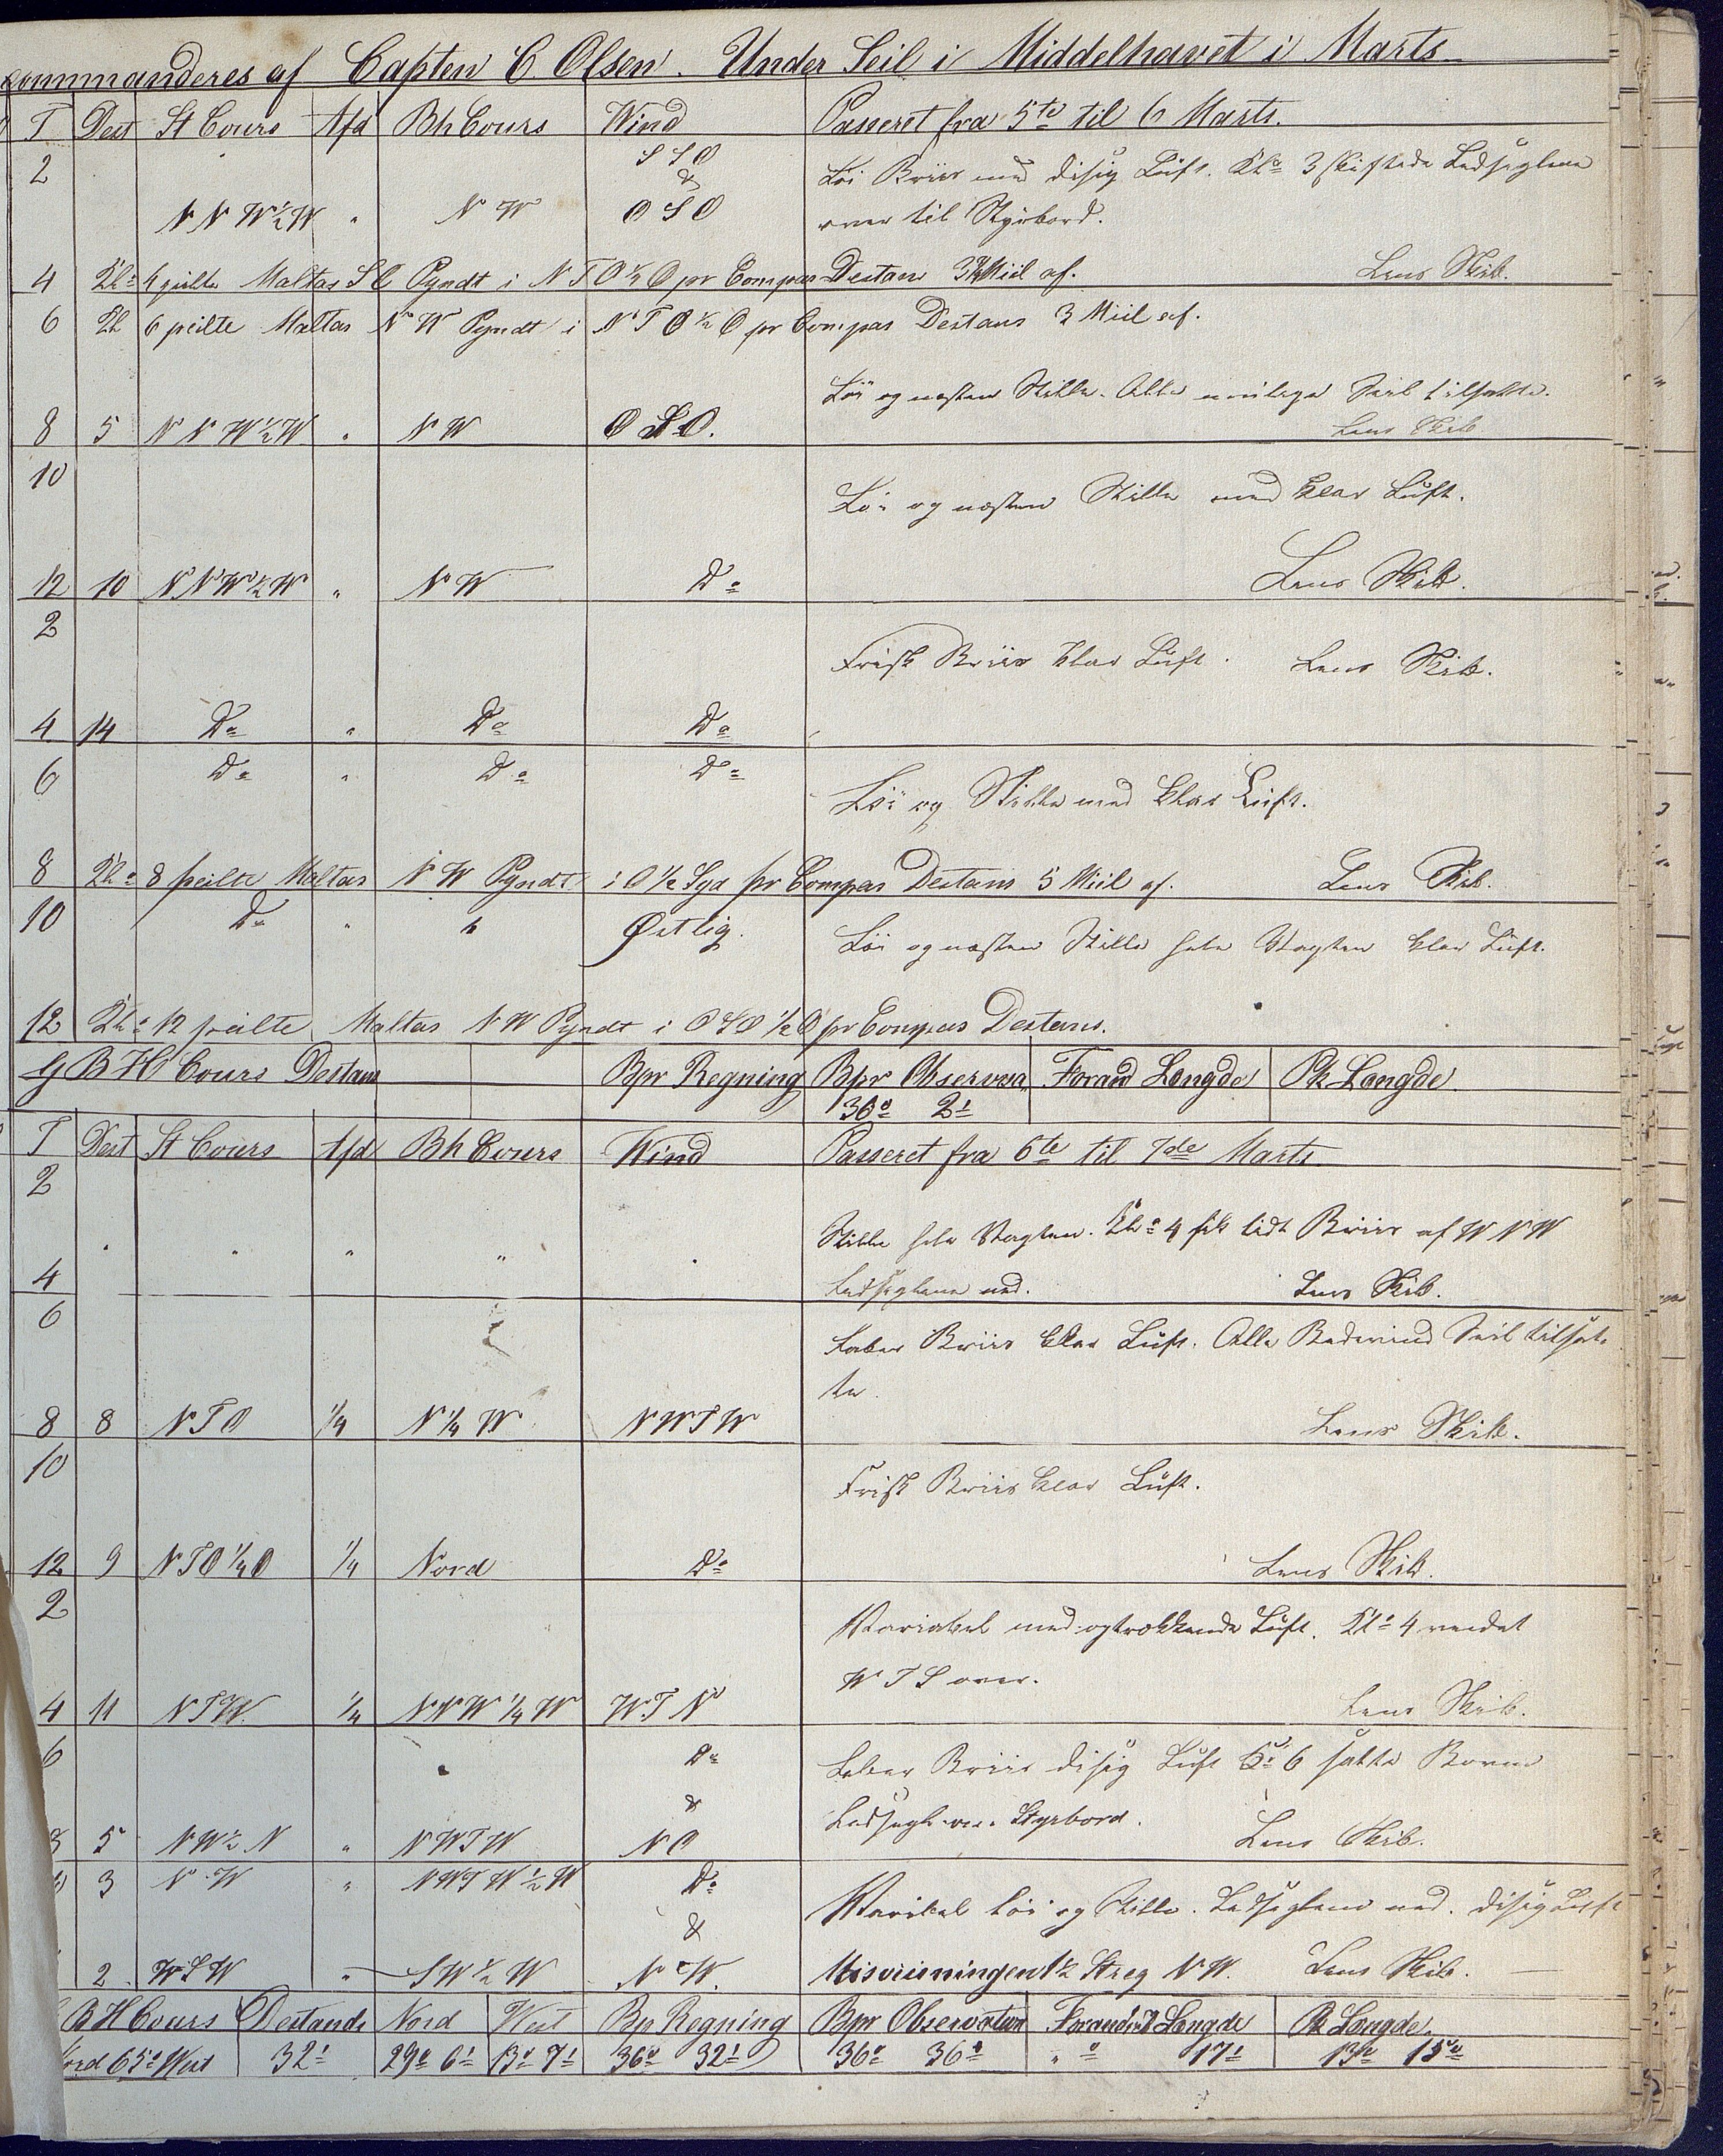 kommanderes af Capten C. Olsen. Under Seil i Middelhavet i Marts
T Dest St Cours Afd Bh Cours Wind Passeret fra 5te til 6 Marts.
2 S S O Löi Briis med disig Luft. Kl= 3 skiftede Ledseglene
&
N N W ½ W " N W O S O over til Styrbord.
4 Kl= 4 peilte Maltas S O Pyndt i N T O ½ O pr Compas Destans 3¾ Miil af. Lens Skib.
6 Kl 6 peilte Maltas N W Pyndt i N T O ½ O pr Compas Destans 3 Miil af.
Löi og næsten Stille. Alle mulige Seil tilsatte.
8 5 N N W ½ W " N W O S O. Lens Skib
10 Löi og næsten Stille med klar Luft.
12 10 N N W ½ W " N W Do Lens Skib.
2
Frisk Briis klar Luft. Lens Skib.
4 14 Do " Do Do
6 Do " Do Do
Löi og Stille med klar Luft.
8 Kl= 8 peilte Maltas N W Pyndt i O ½ Syd pr Compas Destans 5 Miil af. Lens Skib.
10 Do " " Østlig. Löi og næsten Stille hele Vagten klar Luft.
12 Kl= 12 peilte Maltas N W Pyndt i O S O ½ O pr Compas Destans.
G B H Cours Destans Bpr Regning Bpr Observa Forand Længde Pk Længde
36° 2'
T Dest St Cours Afd Bh Cours Wind Passeret fra 6te til 7de Marts
2
Stille hele Vagten. Kl= 4 fik lidt Briis af W N W
4 " " " " " Ledseglene ned. Lens Skib.
6
Laber Briis klar Luft. Alle Bedevind Seil tilsat
te.
8 8 N T O ¼ N ¼ W N W T W Lens Skib.
10
Frisk Briis klar Luft.
12 9 N T O ¼ O ¼ Nord Do Lens Skib.
2
Variabel med optrækkende Luft. Kl= 4 vendet
W T S over.
4 11 N T W ¼ N N W ¼ W W T N Lens Skib.
6 Do Laber Briis disig Luft Kl= 6 satte
&
5 N W ½ N " N W T W N O Styrbord. Lens Skib.
3 N W " N W T W ½ W Do
Varibel löi og Stille. Ledseglene ned. disig Luft
&
2 W S W " S W ½ W N W. Misviisningen 1½ Streg N W. Lens Skib.
B H Cours Destands Nord West Bp Regning Bpr Observation Forandret Længde Pk Længde
Nord 65° West 32' 29° 6' 13° 7' 36° 32' 36° 36' " ° 17' 13° 15'